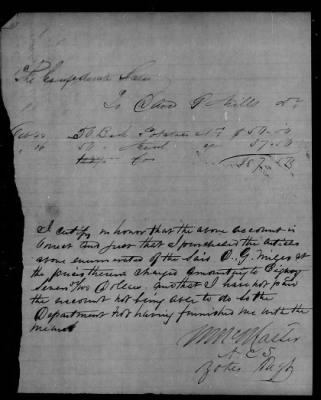 The Confederate States
To Edwd G. Mills Dr
50 Bush Potatoes $ 50.00
" 16 50 " Meal " 37.50
$87.50
I certify on honor that the above account is
Correct and just that I purchased the articles
above enumerated of the said O. G. Mills at
the prices therein charged amounting to Eighty
Seven 50/100 Dollars. And that I have not paid
the account not being able to do so the
Department not having furnished me with the
means
A. C. S.
Regt